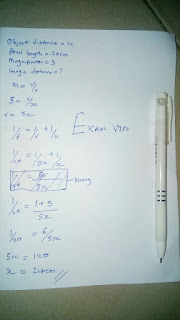 Object distance = x
focal length = 20cm
Magnification = 5
Image distance = ?
m = v/u
5 = v/x
v = 5x
EXAM VIBS
1/f = 1/v + 1/u
1/20 = 1/5x + 1/x
wrong
1/20 = 1+5/5x
1/20 = 6/5x
5x = 120
x = 24cm //